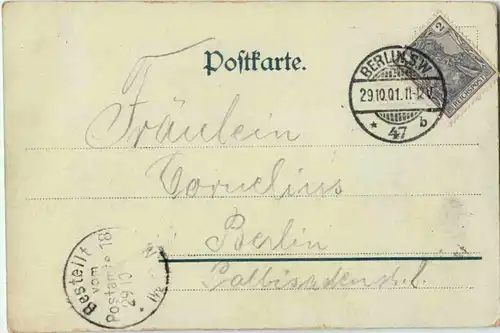 Postkarte.
2
REICHSPOST
BERLIN S.W.
29.10.01.11-12V.
* 47 b
Fräulein
Cornelius
Berlin
Bestellt
vom
Postamte 18
29.10